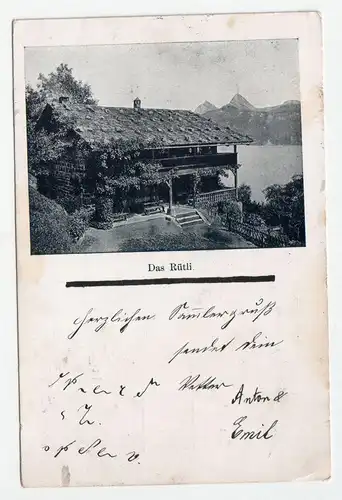 Das Rütli
Herzlichen Sammlergruß
sendet dein
Vetter
Anton &
Emil